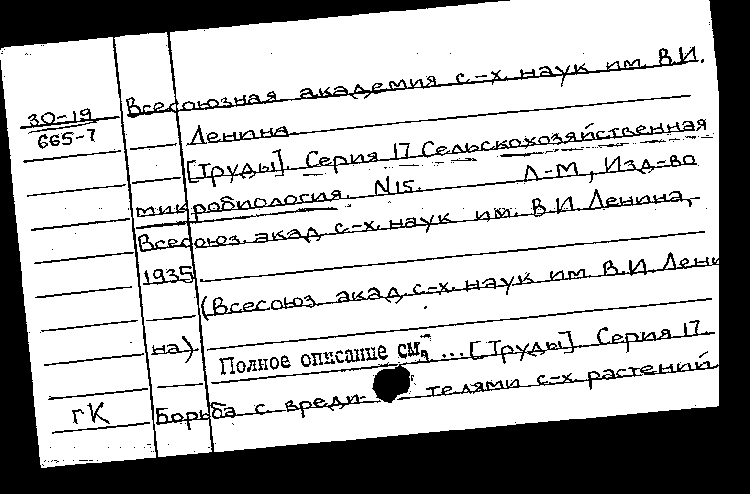 30-19
665-7
Всесоюзная академия с.-х. наук им. В.И.
Ленина.
[Труды]. Серия 17 Сельскохозяйственная
микробиология. N15. Л-М, Изд-во
Всесоюз. акад. с-х. наук им. В.И. Ленина,-
1935
(Всесоюз. акад. с-х. наук им. В.И. Лени
на)
Полное описание см. ...[Труды]. Серия 17.
гК Борьба с вреди- телями с-х. растений